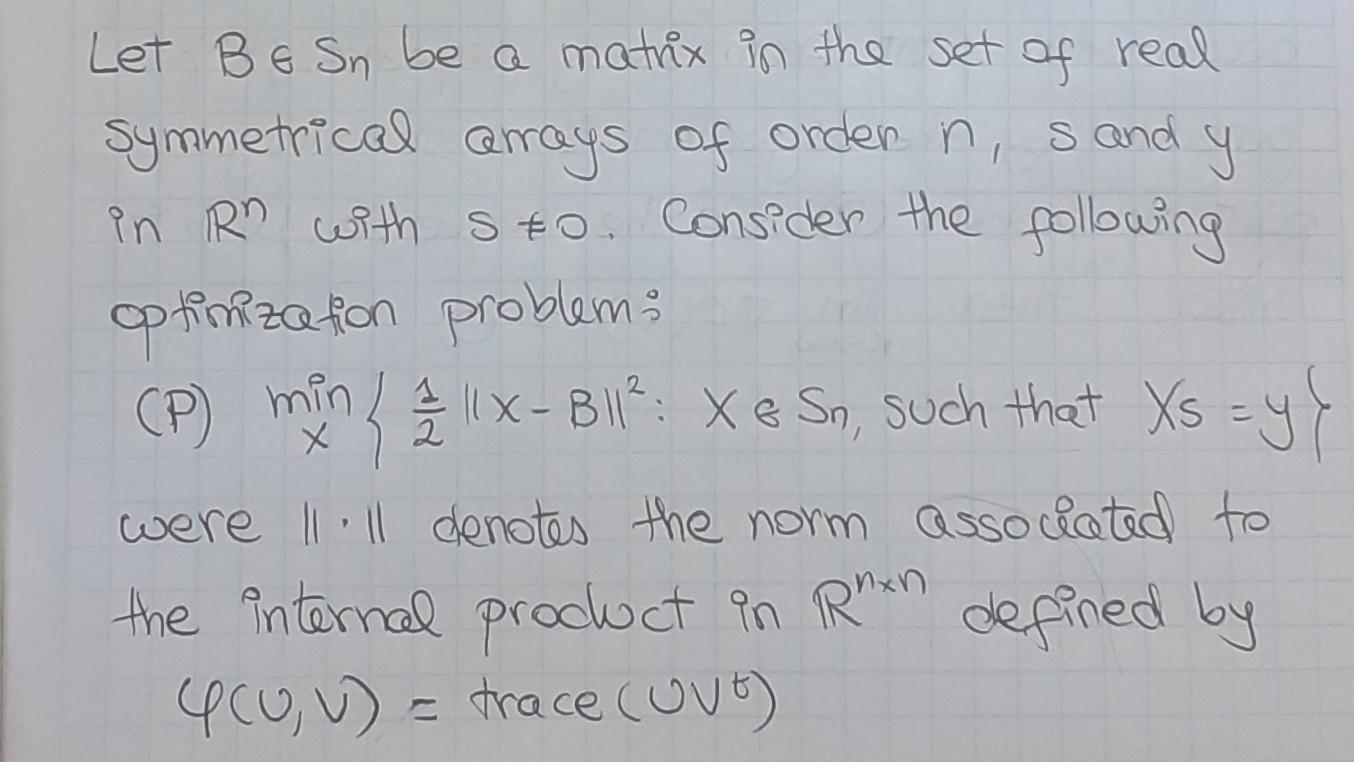 Let B ∈ Sn be a matrix in the set of real
symmetrical arrays of order n, s and y
in ℝⁿ with s ≠ 0. Consider the following
optimization problem:
(P) min_X { 1/2 ||X - B||² : X ∈ Sn, such that Xs = y }
were ||·|| denotes the norm associated to
the internal product in ℝⁿˣⁿ defined by
φ(U, V) = trace(UVᵗ)